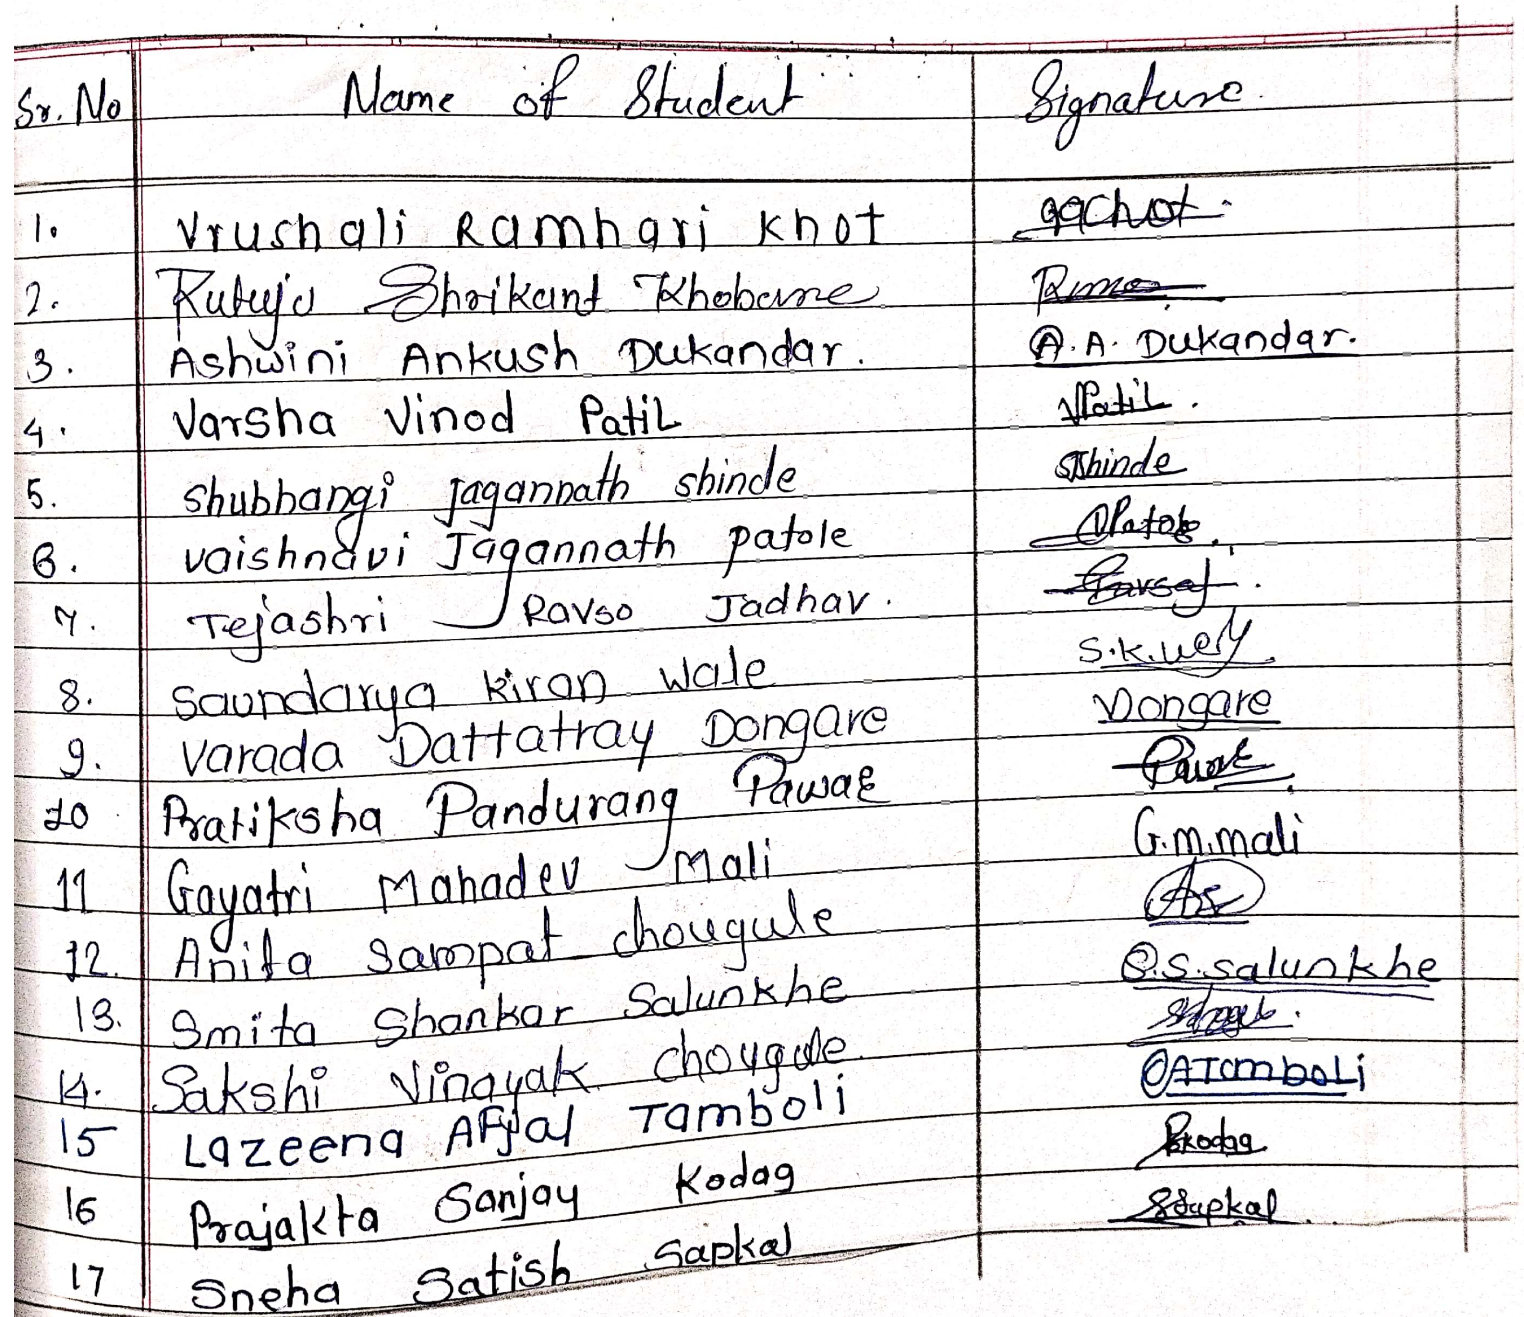 Sr. No Name of Student Signature
1. Vrushali Ramhari Khot
2. Rutuja Shrikant Khobare
3. Ashwini Ankush Dukandar. A.A. Dukandar.
4. Varsha Vinod Patil VPatil.
5. Shubhangi Jagannath shinde SJhinde
6. vaishnavi Jagannath patole
7. Tejashri Ravso Jadhav.
8. Saundarya kiran wale S.k.
9. Varada Dattatray Dongare Dongare
10 Pratiksha Pandurang Pawar
11 Gayatri Mahadev Mali G.m.mali
12. Anita Sampat chougule
13. Smita Shankar Salunkhe S.S.salunkhe
14. Sakshi Vinayak chougule.
15 Lazeena Afjal Tamboli ATamboli
16 Prajakta Sanjay Kodag PKodag
17 Sneha Satish Sapkal SSapkal